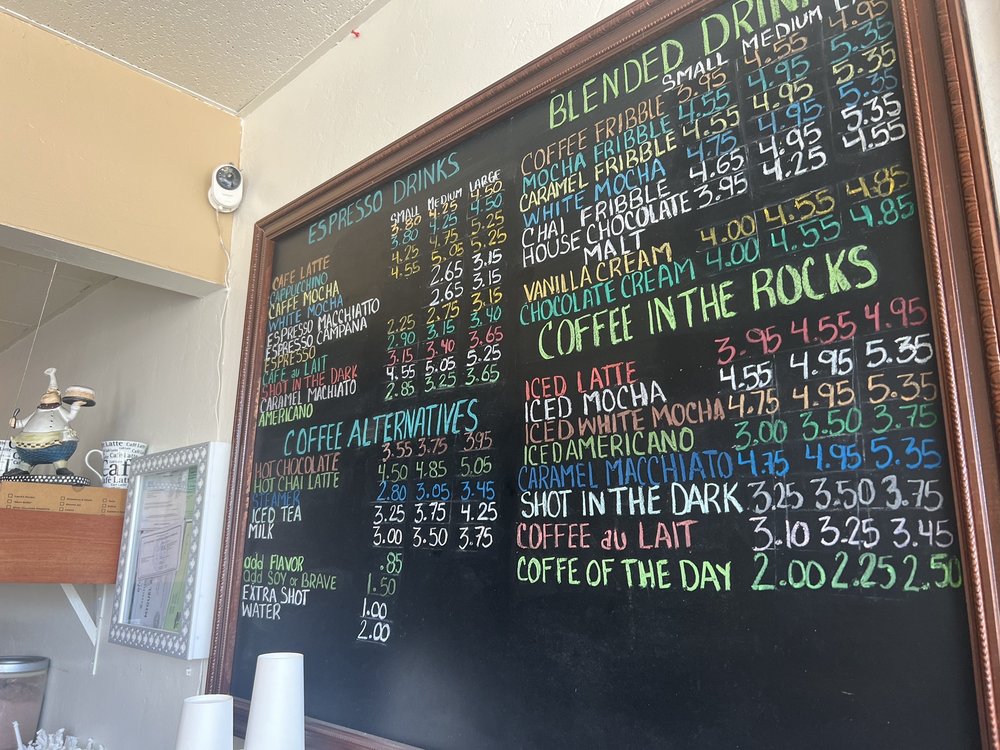 ESPRESSO DRINKS
SMALL MEDIUM LARGE
CAFE LATTE 3.80 4.25 4.50
CAPPUCCINO 3.80 4.25 4.50
CAFFE MOCHA 4.25 4.75 5.25
WHITE MOCHA 4.55 5.05 5.25
ESPRESSO MACCHIATTO 2.65 3.15
ESPRESSO CAMPANA 2.65 3.15
ESPRESSO 2.25 2.75 3.15
CAFE au LAIT 2.90 3.15 3.40
SHOT IN THE DARK 3.15 3.40 3.65
CARAMEL MACHIATO 4.55 5.05 5.25
AMERICANO 2.85 3.25 3.65
COFFEE ALTERNATIVES
HOT CHOCOLATE 3.55 3.75 3.95
HOT CHAI LATTE 4.50 4.85 5.05
STEAMER 2.80 3.05 3.45
ICED TEA 3.25 3.75 4.25
MILK 3.00 3.50 3.75
add FLAVOR .85
add SOY or BRAVE 1.50
EXTRA SHOT 1.00
WATER 2.00
BLENDED DRIN
SMALL MEDIUM
COFFEE FRIBBLE 3.95 4.55 4.95
MOCHA FRIBBLE 4.55 4.95 5.35
CARAMEL FRIBBLE 4.55 4.95 5.35
WHITE MOCHA 4.75 4.95 5.35
CHAI FRIBBLE 4.65 4.95 5.35
HOUSE CHOCOLATE 3.95 4.25 4.55
MALT
VANILLA CREAM 4.00 4.55 4.85
CHOCOLATE CREAM 4.00 4.55 4.85
COFFEE IN THE ROCKS
ICED LATTE 3.95 4.55 4.95
ICED MOCHA 4.55 4.95 5.35
ICED WHITE MOCHA 4.75 4.95 5.35
ICED AMERICANO 3.00 3.50 3.75
CARAMEL MACCHIATO 4.75 4.95 5.35
SHOT IN THE DARK 3.25 3.50 3.75
COFFEE au LAIT 3.10 3.25 3.45
COFFE OF THE DAY 2.00 2.25 2.50